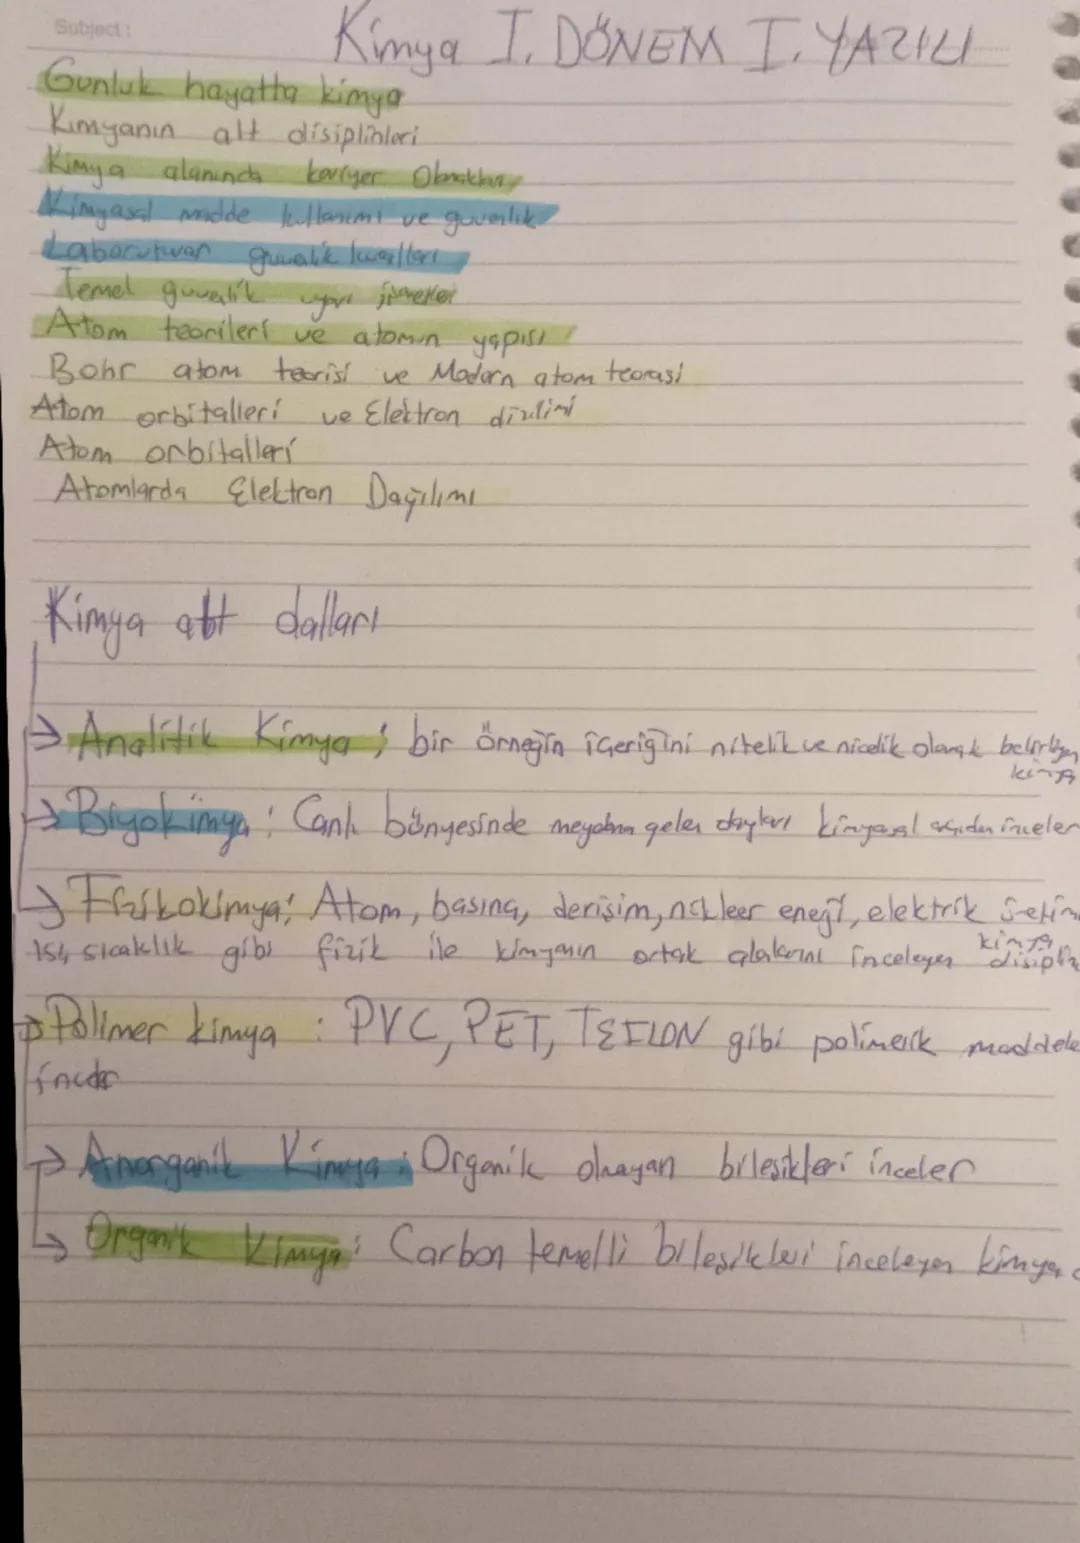 Subject:
Kimya I. DÖNEM I. YAZILI
Gunluk hayatta kimya
Kımyanın alt disiplinleri
Kimya alanında kariyer
Kimyasal madde kullanımı ve guvenlik
Laborutuvar guvenlik kuralları
Temel guvenlik uyarı işaretleri
Atom teorileri ve atomun yapısı
Bohr atom teorisi ve Modern atom teorası
Atom orbitalleri ve Elektron dizilimi
Atom orbitalleri
Atomlarda Elektron Dağılımı
Kimya alt dalları
→ Analitik Kimya ; bir örneğin içeriğini nitelik ve nicelik olarak belirleyen
kimya
→ Biyokimya : Canlı bünyesinde meydana gelen olayları kimyasal açıdan inceler
→ Fizikokimya; Atom, basınç, derişim, nükleer enerji, elektrik üretim
ısı, sıcaklık gibi fizik ile kimyanın ortak alanlarını inceleyen kimya disiplin
→ Polimer kimya : PVC, PET, TEFLON gibi polimerik maddele
inceler
→ Anorganik Kimya : Organik olmayan bileşikleri inceler
→ Organik Kimya : Carbon temelli bileşikleri inceleyen kimya